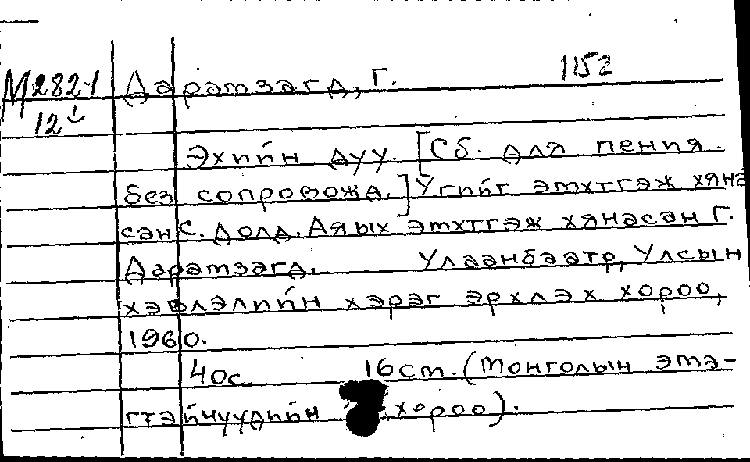 М282-1 Дарамзагд, Г. 1152
12
Эхийн дуу. [Сб. для пения
без сопровожд.] Үгийг эмхтгэж хяна
сан С. Долд. Аяыг эмхтгэж хянасан Г.
Дарамзагд. Улаанбаатр, Улсын
хэвлэлийн хэрэг эрхлэх хороо,
1960.
40с 16см. (Монголын эмэ-
гтэйчүүдийн хороо).